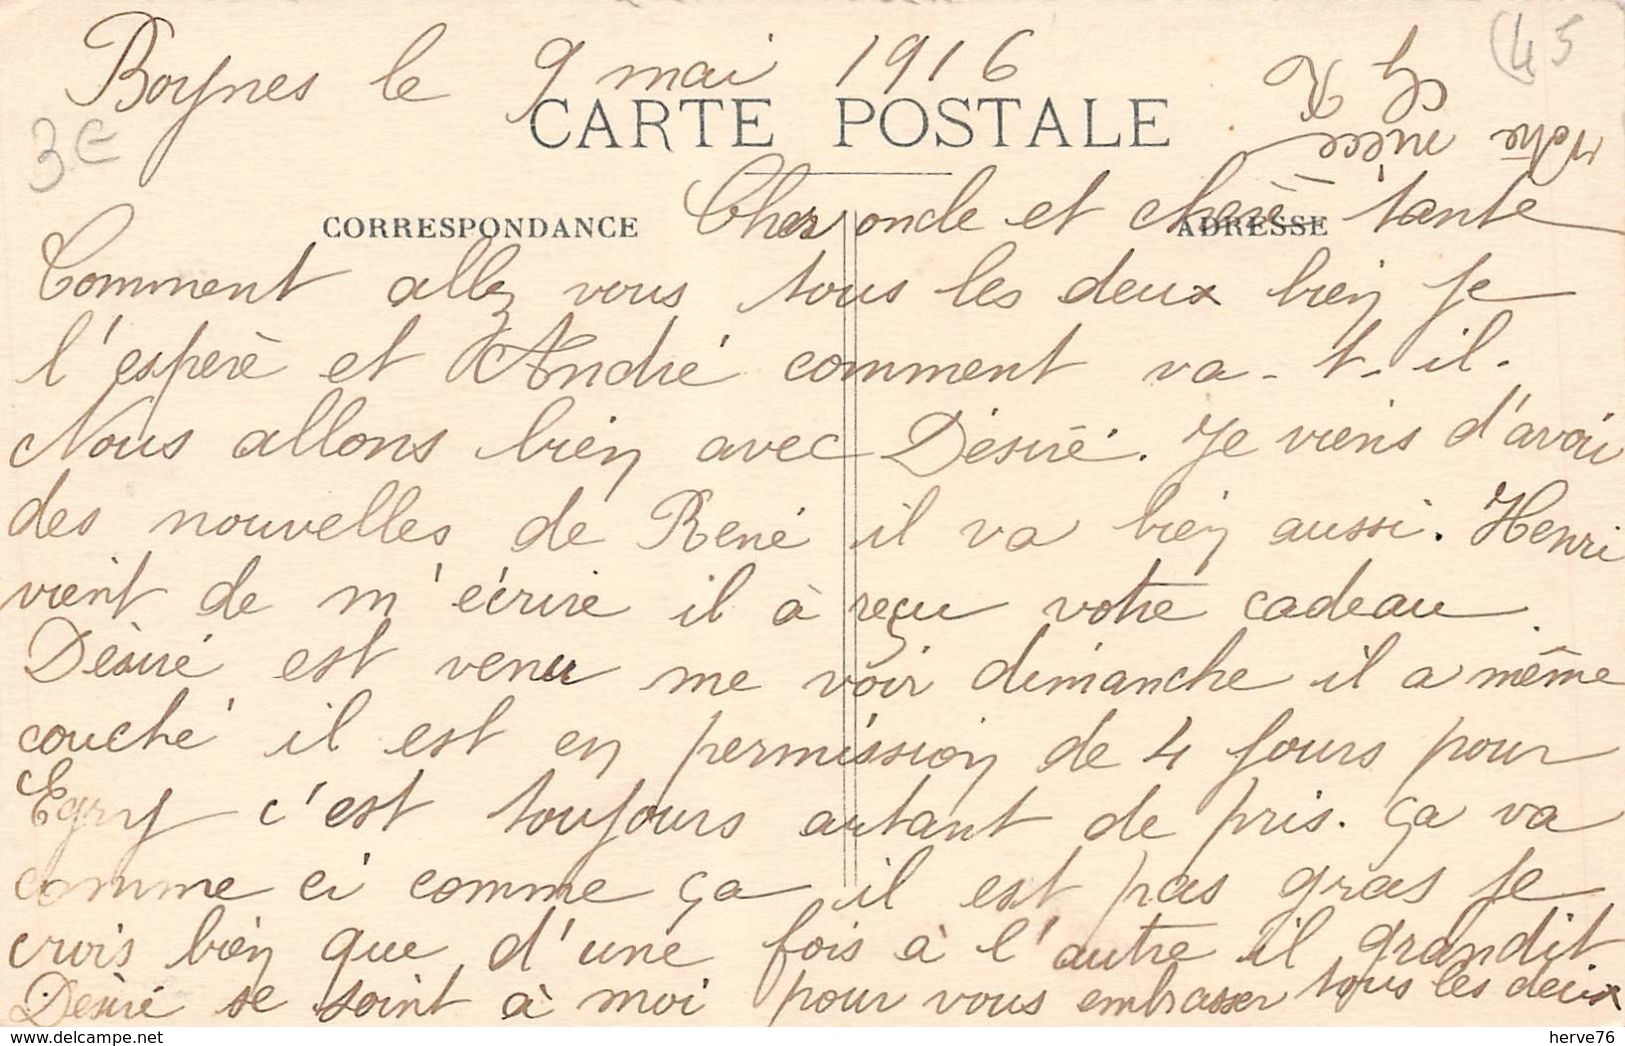 Boynes le 9 mai 1916
(45
3€
CARTE POSTALE
CORRESPONDANCE
ADRESSE
Cher oncle et chère tante
Comment allez vous tous les deux bien Je
l'espère et André comment va-t-il.
Nous allons bien avec Désiré. Je viens d'avoir
des nouvelles de René il va bien aussi. Henri
vient de m'écrire il à reçu votre cadeau.
Désiré est venu me voir dimanche il a même
couché il est en permission de 4 Jours pour
Egry c'est toujours autant de pris. ça va
comme ci comme ça il est pas gras Je
crois bien que d'une fois à l'autre il grandit
Désiré se joint à moi pour vous embrasser tous les deux
Votre nièce
herve76